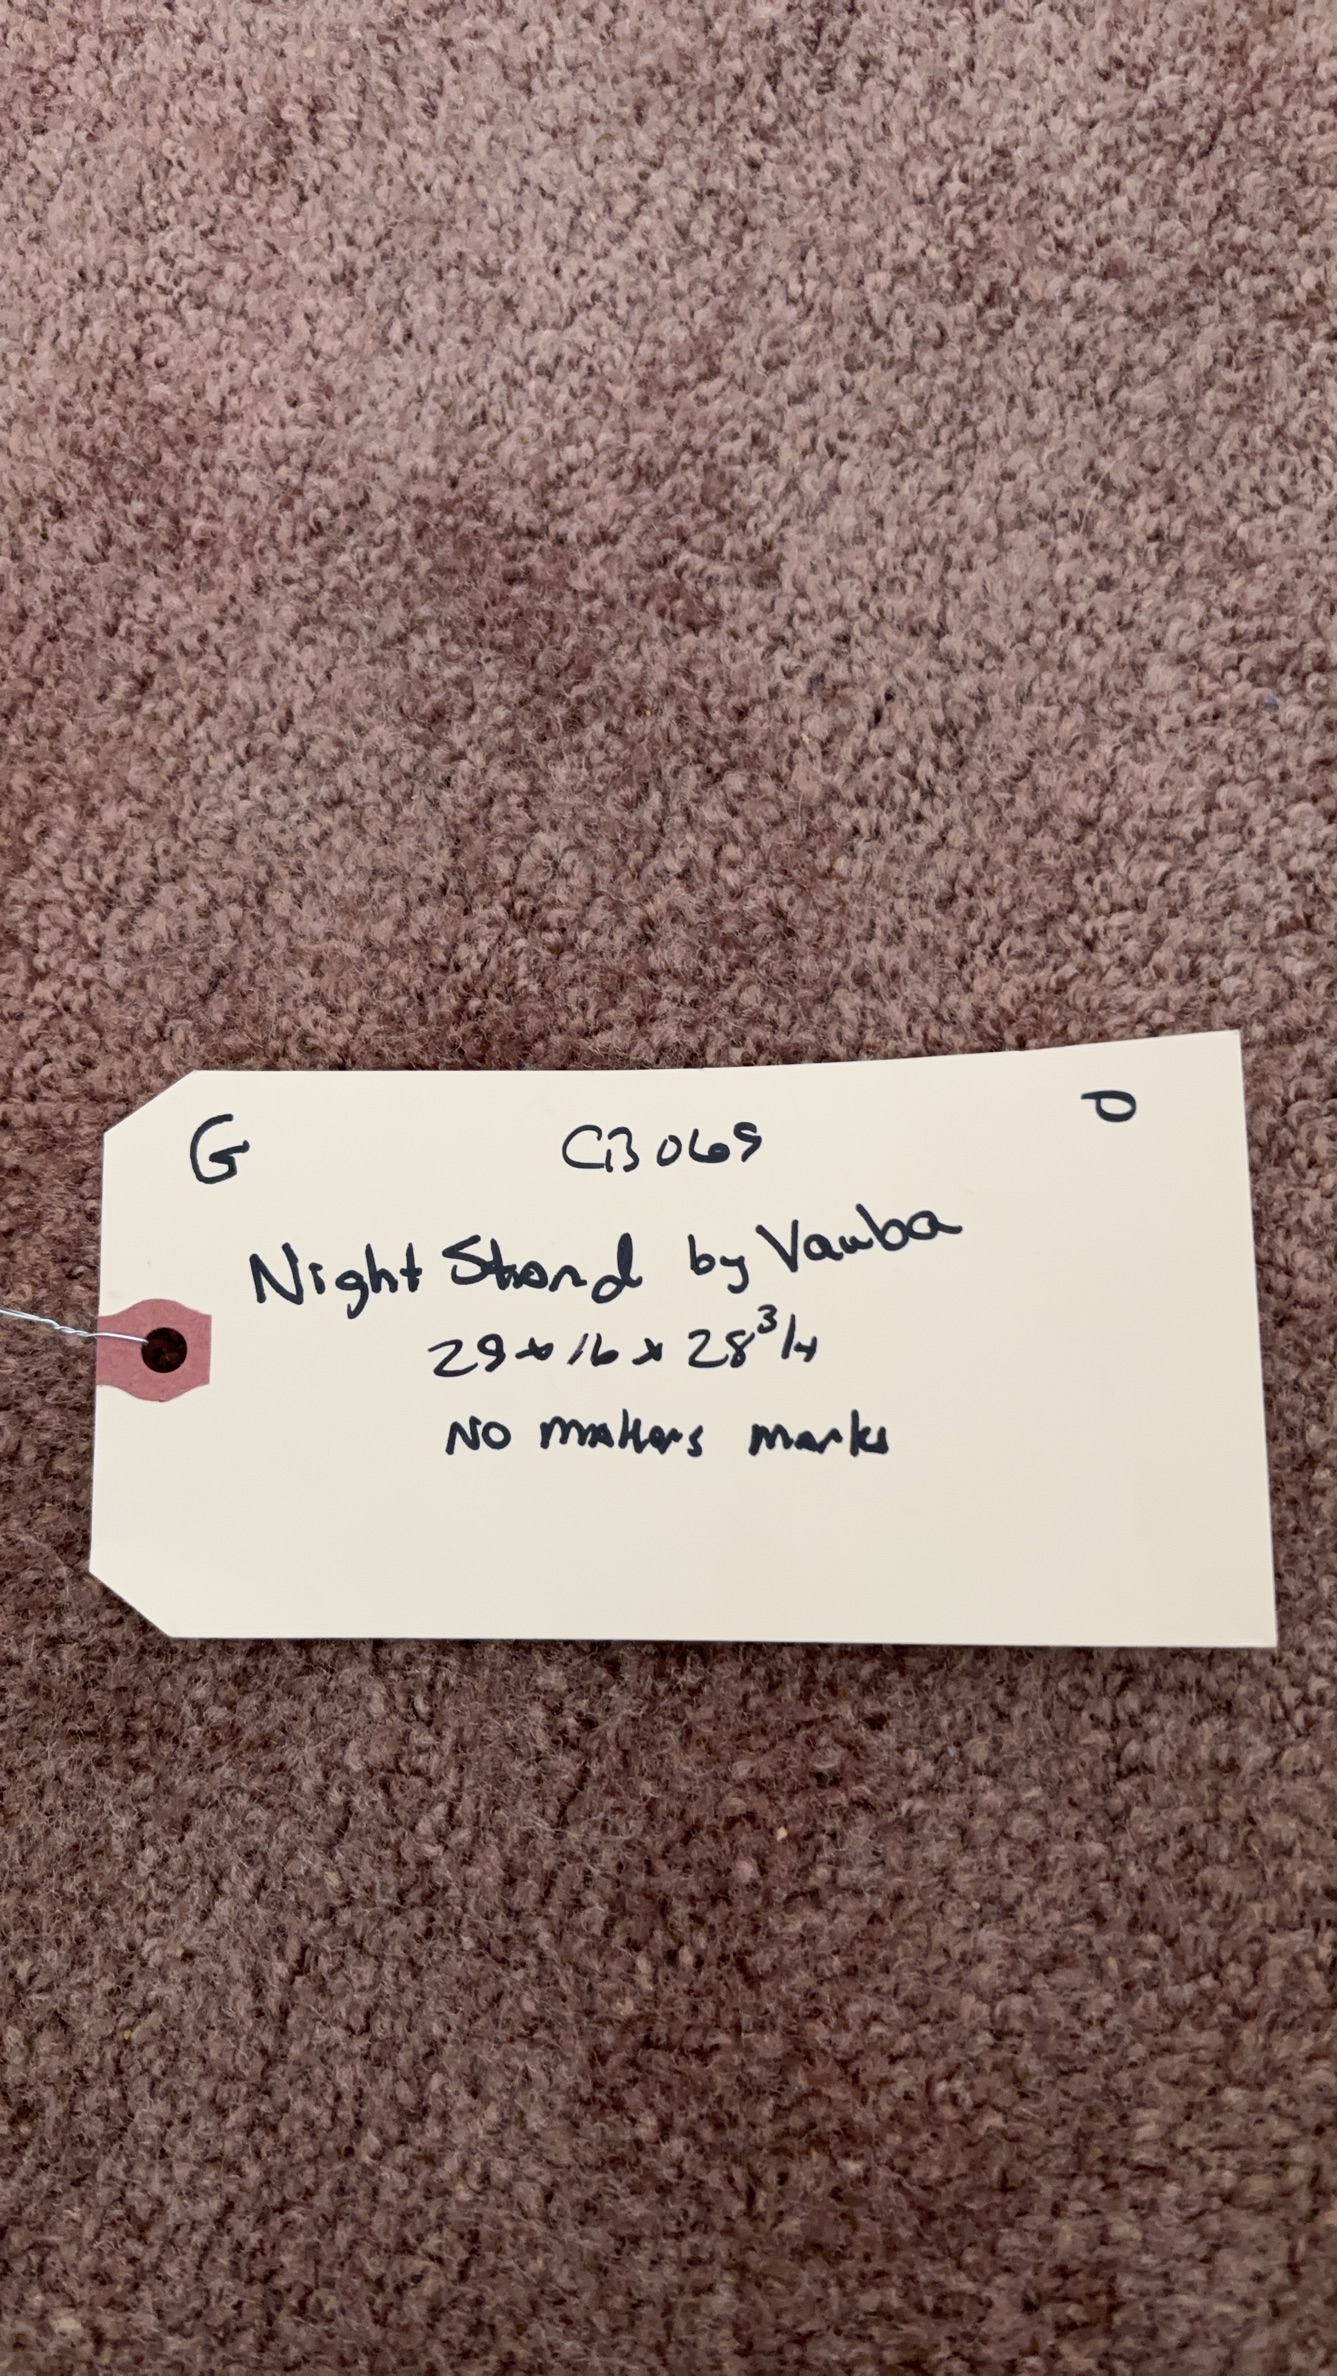 G CB069 P
Night Stand by Vauba
29 x 16 x 28 3/4
No makers marks